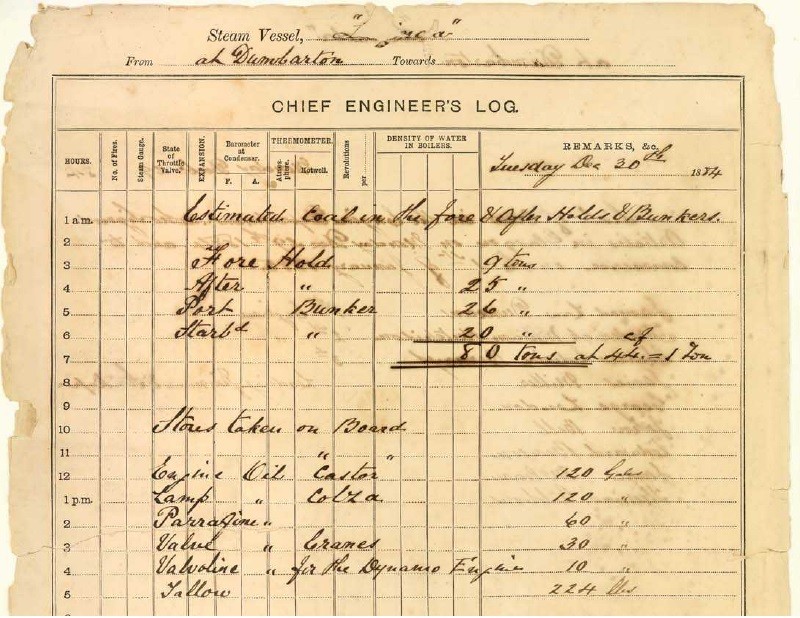 Steam Vessel, "
From at Dumbarton Towards
CHIEF ENGINEER'S LOG.
HOURS. No. of Fires. Steam Gauge. State of Throttle Valve. EXPANSION. Barometer at Condenser. F. A. THERMOMETER. Atmosphere. Hotwell. Revolutions per DENSITY OF WATER IN BOILERS. REMARKS, &c.
Tuesday Dec 30th 1884
1 a.m. Estimated Coal in the fore & After Holds & Bunkers.
2
3 Fore Hold 9 tons
4 After " 25 "
5 Port Bunker 26 "
6 Starbd " 20 "
7 80 tons at 44 cf = 1 Ton
8
9
10 Stores taken on Board
11 " "
12 Engine Oil Castor 120 Gals
1 p.m. Lamp " Colza 120 "
2 Parrafine " 60 "
3 Valve " Cranes 30 "
4 Valvoline " for the Dynamo Engine 10 "
5 Tallow 224 lbs